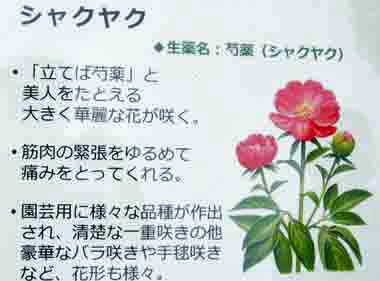 シャクヤク
◆生薬名：芍薬（シャクヤク）
・「立てば芍薬」と
美人をたとえる
大きく華麗な花が咲く。
・筋肉の緊張をゆるめて
痛みをとってくれる。
・園芸用に様々な品種が作出
され、清楚な一重咲きの他
豪華なバラ咲きや手毬咲き
など、花形も様々。